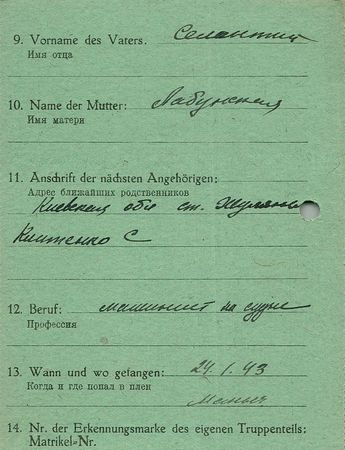 9. Vorname des Vaters.
Имя отца
10. Name der Mutter: Лабунская
Имя матери
11. Anschrift der nächsten Angehörigen:
Адрес ближайших родственников
Киевская обл ст. Жуляны
С
12. Beruf: машинист на судне
Профессия
13. Wann und wo gefangen: 24. 1. 43
Когда и где попал в плен
14. Nr. der Erkennungsmarke des eigenen Truppenteils:
Matrikel-Nr.